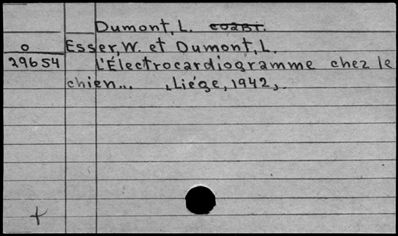 Dumont, L.
o Esser, W. et Dumont, L.
29654 L'Électrocardiogramme chez le
chien... , Liége, 1942,.